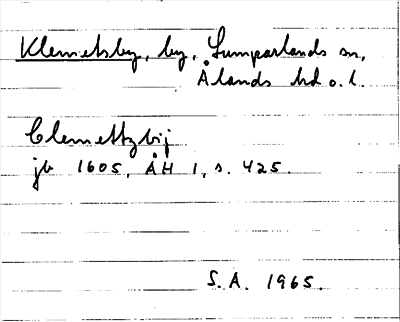 Klemetsby, by, Lumparlands sn,
Ålands hd o. l.
Clemettzbij
jb 1605, ÅH 1, s. 425.
S.A. 1965.